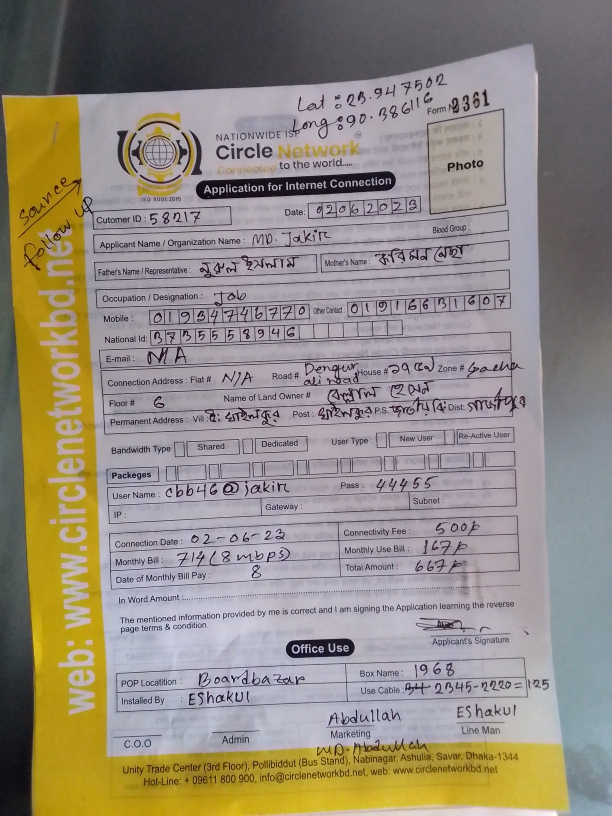 Lat : 23.947502
Long : 90.386116
Form N 2361
NATIONWIDE ISP
Circle Network
Connected to the world....
ISO 9001:2015
Photo
Application for Internet Connection
Source
follow up
Cutomer ID : 58217
Date: 02062023
Applicant Name / Organization Name : MD. Jakir
Blood Group :
Father's Name / Representative : নুরুল ইসলাম
Mother's Name :
Occupation / Designation : Job
Mobile : 01934746770 Other Contact : 01916631607
National Id: 3735558946
E-mail : N/A
Connection Address : Flat # N/A Road # Dengur ali road House # Zone # Gacha
Floor # 6 Name of Land Owner #
Permanent Address : Vill : Post : P.S. Dist:
Bandwidth Type Shared Dedicated User Type : New User Re-Active User
Packeges
User Name : cbb46@jakir Pass : 44455
IP : Gateway : Subnet :
Connection Date : 02-06-23 Connectivity Fee : 500/-
Monthly Bill : 714 (8 mbps) Monthly Use Bill : 167/-
Date of Monthly Bill Pay : 8 Total Amount : 667/-
In Word Amount :
The mentioned information provided by me is correct and I am signing the Application learning the reverse
page terms & condition.
Applicant's Signature
Office Use
POP Locatition : Boardbazar Box Name : 1968
Installed By : EShakul Use Cable : 2345-2220=125
Abdullah EShakul
C.O.O Admin Marketing Line Man
MD. Abdullah
Unity Trade Center (3rd Floor), Pollibiddut (Bus Stand), Nabinagar, Ashulia, Savar, Dhaka-1344
Hot-Line: + 09611 800 900, info@circlenetworkbd.net, web: www.circlenetworkbd.net
web: www.circlenetworkbd.net